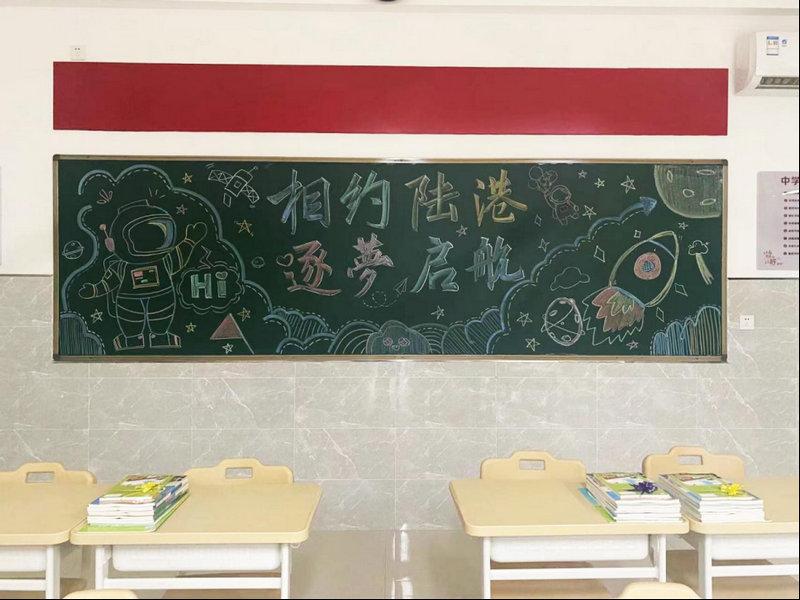 相约陆港
逐夢启航
Hi
中学